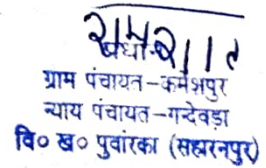 ग्राम पंचायत-कमेशपुर
न्याय पंचायत-गन्देवड़ा
वि० ख० पुवांरका (सहारनपुर)